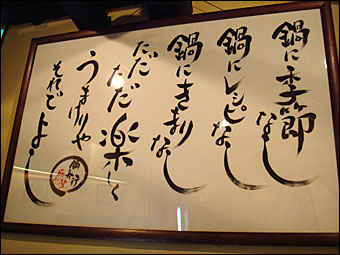 鍋に季節なし
鍋にレシピなし
鍋にきまりなし
ただただ楽しく
うまけりや
それでよし